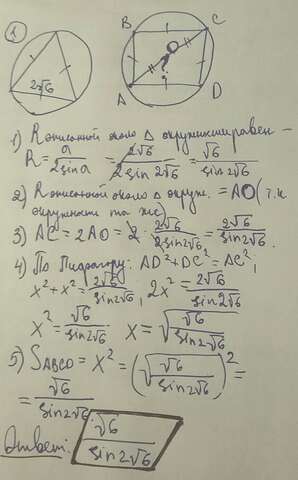 1
2√6
B
C
O
?
A
D
1) R описанной около Δ окружности равен –
R = a / 2sina = 2√6 / 2sin 2√6 = √6 / sin2√6
2) R описанной около Δ окруж. = AO (т.к
окружности та же)
3) AC = 2AO = 2 · 2√6 / 2sin2√6 = 2√6 / sin2√6.
4) По Пифагору: AD² + DC² = AC²,
x² + x² = 2√6 / sin2√6, 2x² = 2√6 / sin2√6
x² = √6 / sin2√6 x = √(√6 / sin2√6)
5) SABCD = x² = (√(√6 / sin2√6))² =
= √6 / sin2√6
Ответ: √6 / sin2√6